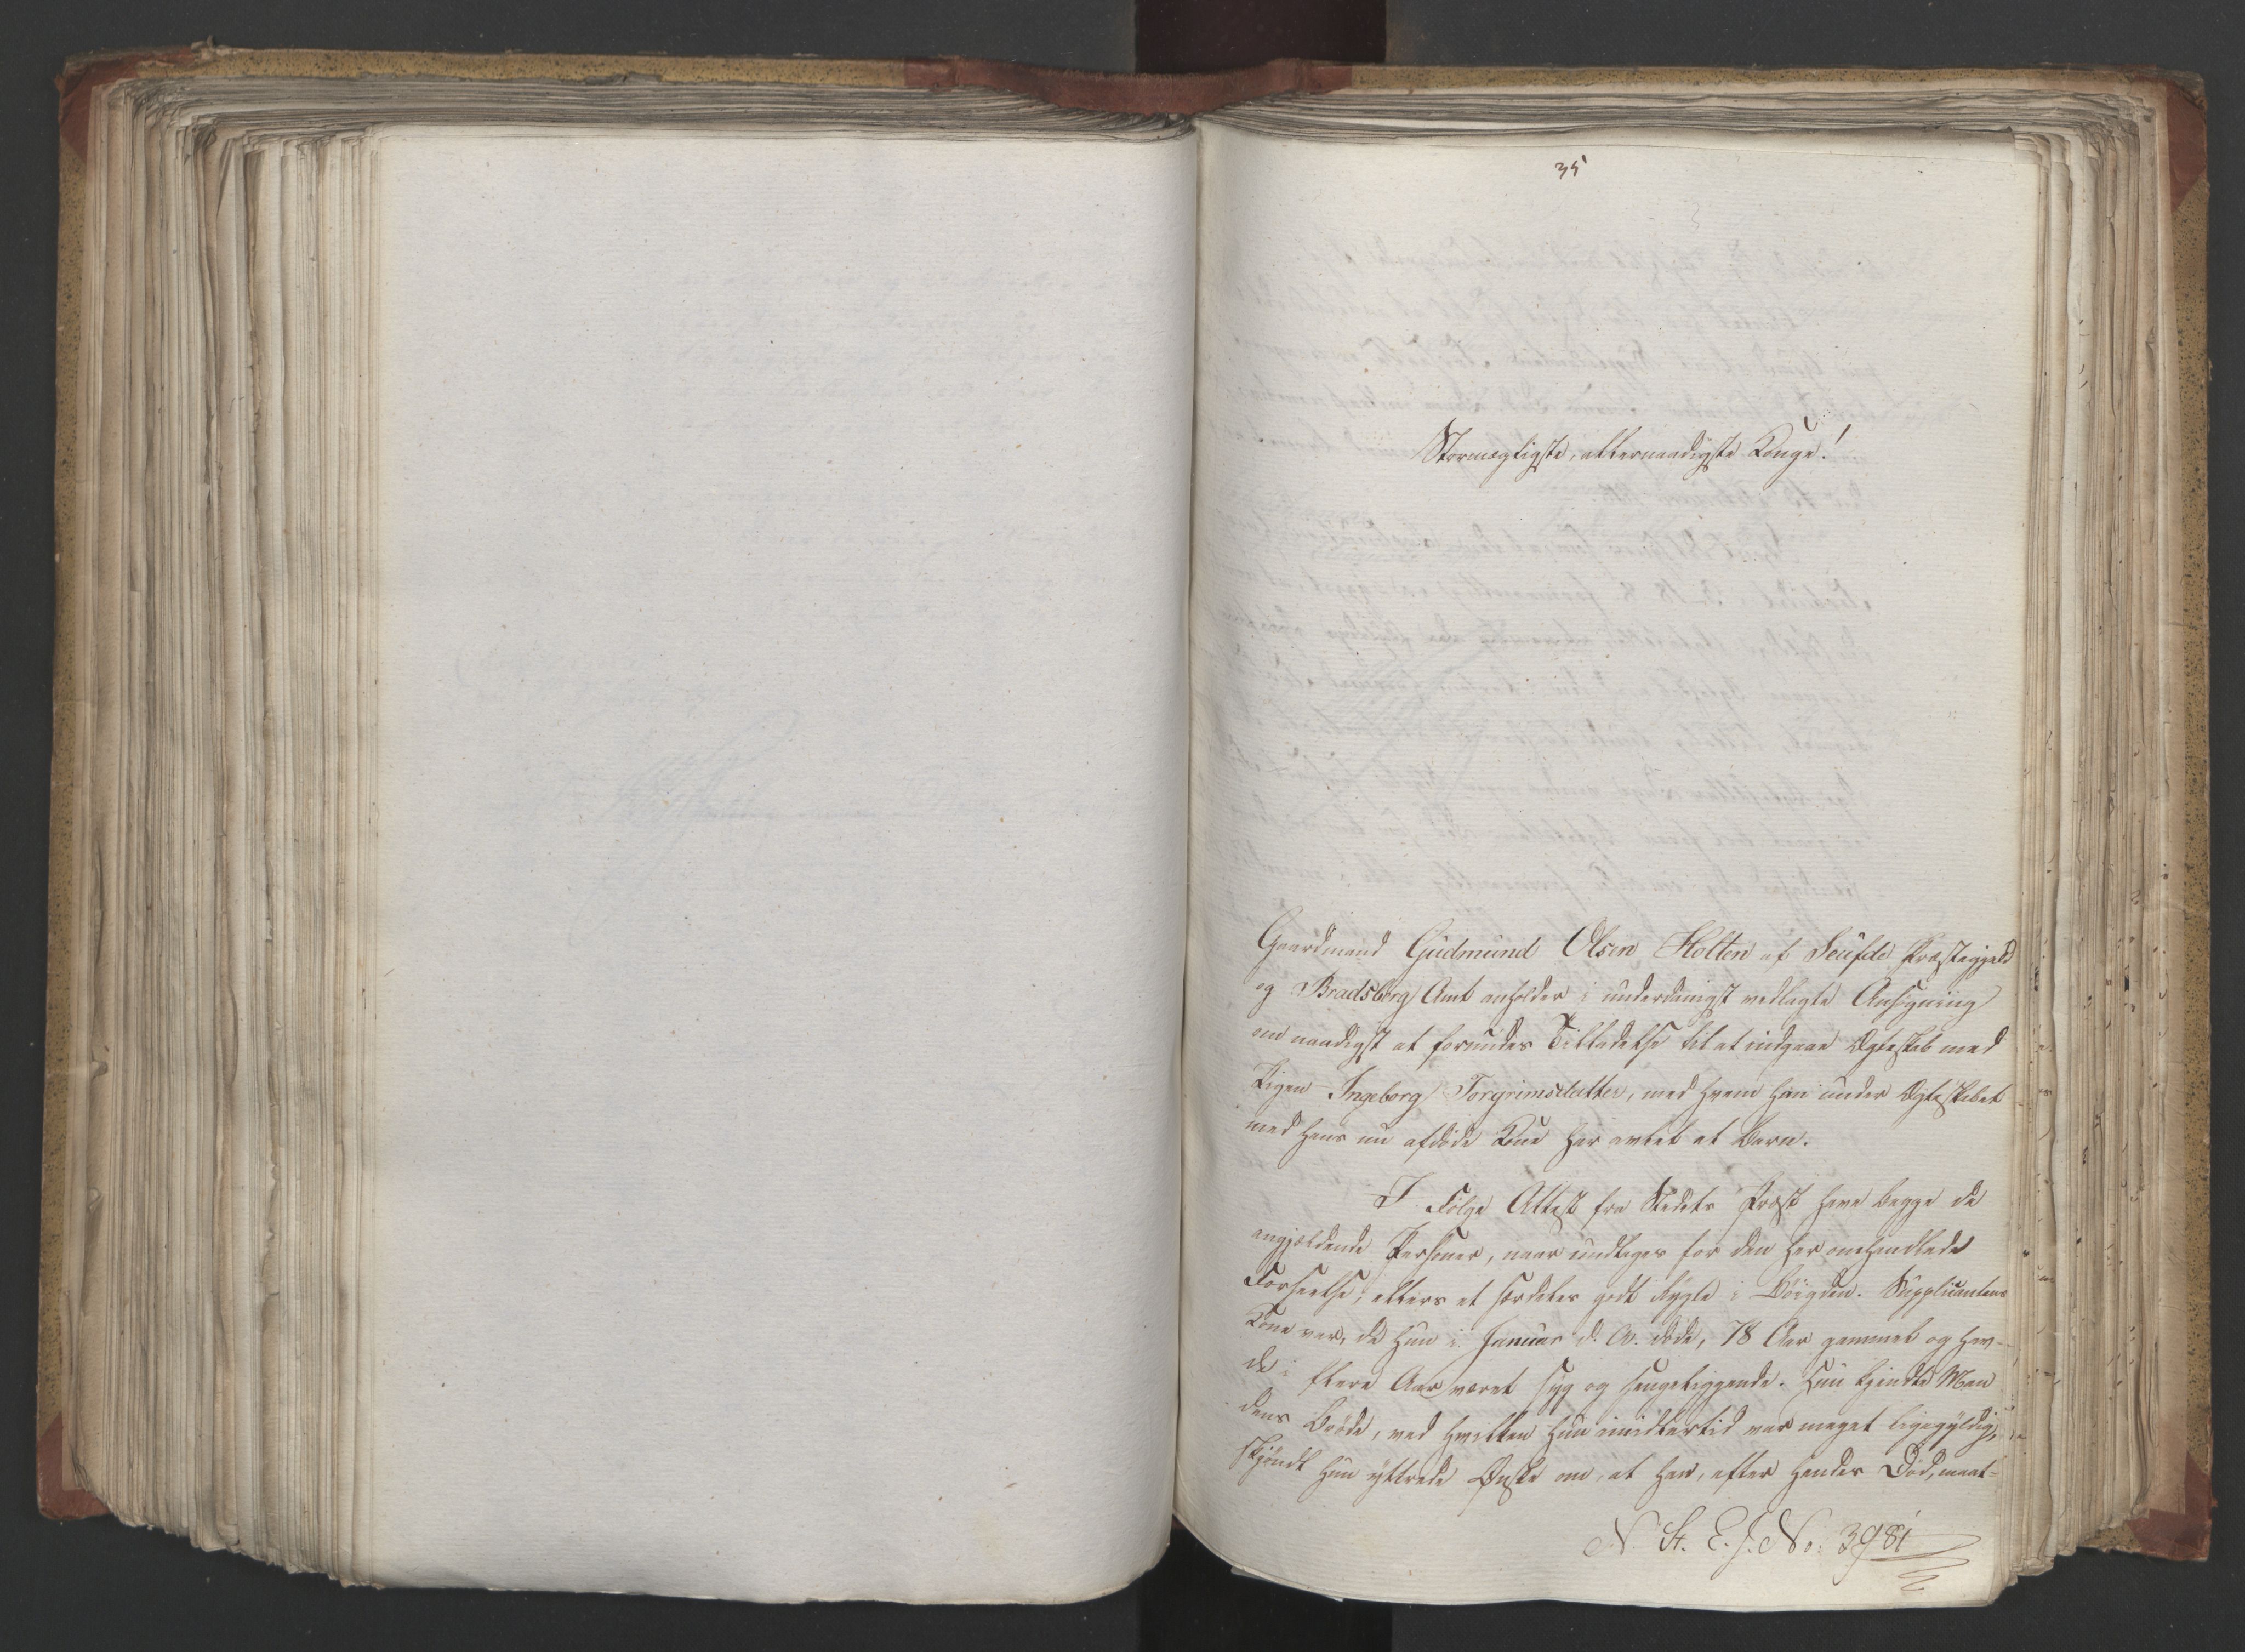 35
Stormægtigste, allernaadigste Konge!
Gaardmand Gudmund Olsen Holten af Seufde Præstegjeld
og Bradsberg Amt anholder i underdanigst vedlagte Ansøgning
om naadigst at forundes Tilladelse til at indgaae Ægteskab med
Pigen Ingeborg Torgrimsdatter, med hvem han under Ægteskabet
med hans nu afdøde Kone har avlet et Barn.
I Følge Attest fra Stedets Præst have begge de
angjældende Personer, naar undtages for den her omhandlede
Forseelse, ellers et særdeles godt Rygte i Bøigden. Supplicantens
Kone var, da hun i Januar d. A. døde, 78 Aar gammel og hav-
de i flere Aar været syg og sengeliggende. Hun kjendte Man
dens Brøde, ved hvilken hun imidlertid var meget ligegyldig,
skjøndt hun yttrede Ønske om, at han, efter hendes Død, maat-
N. St. E. J. No. 3981